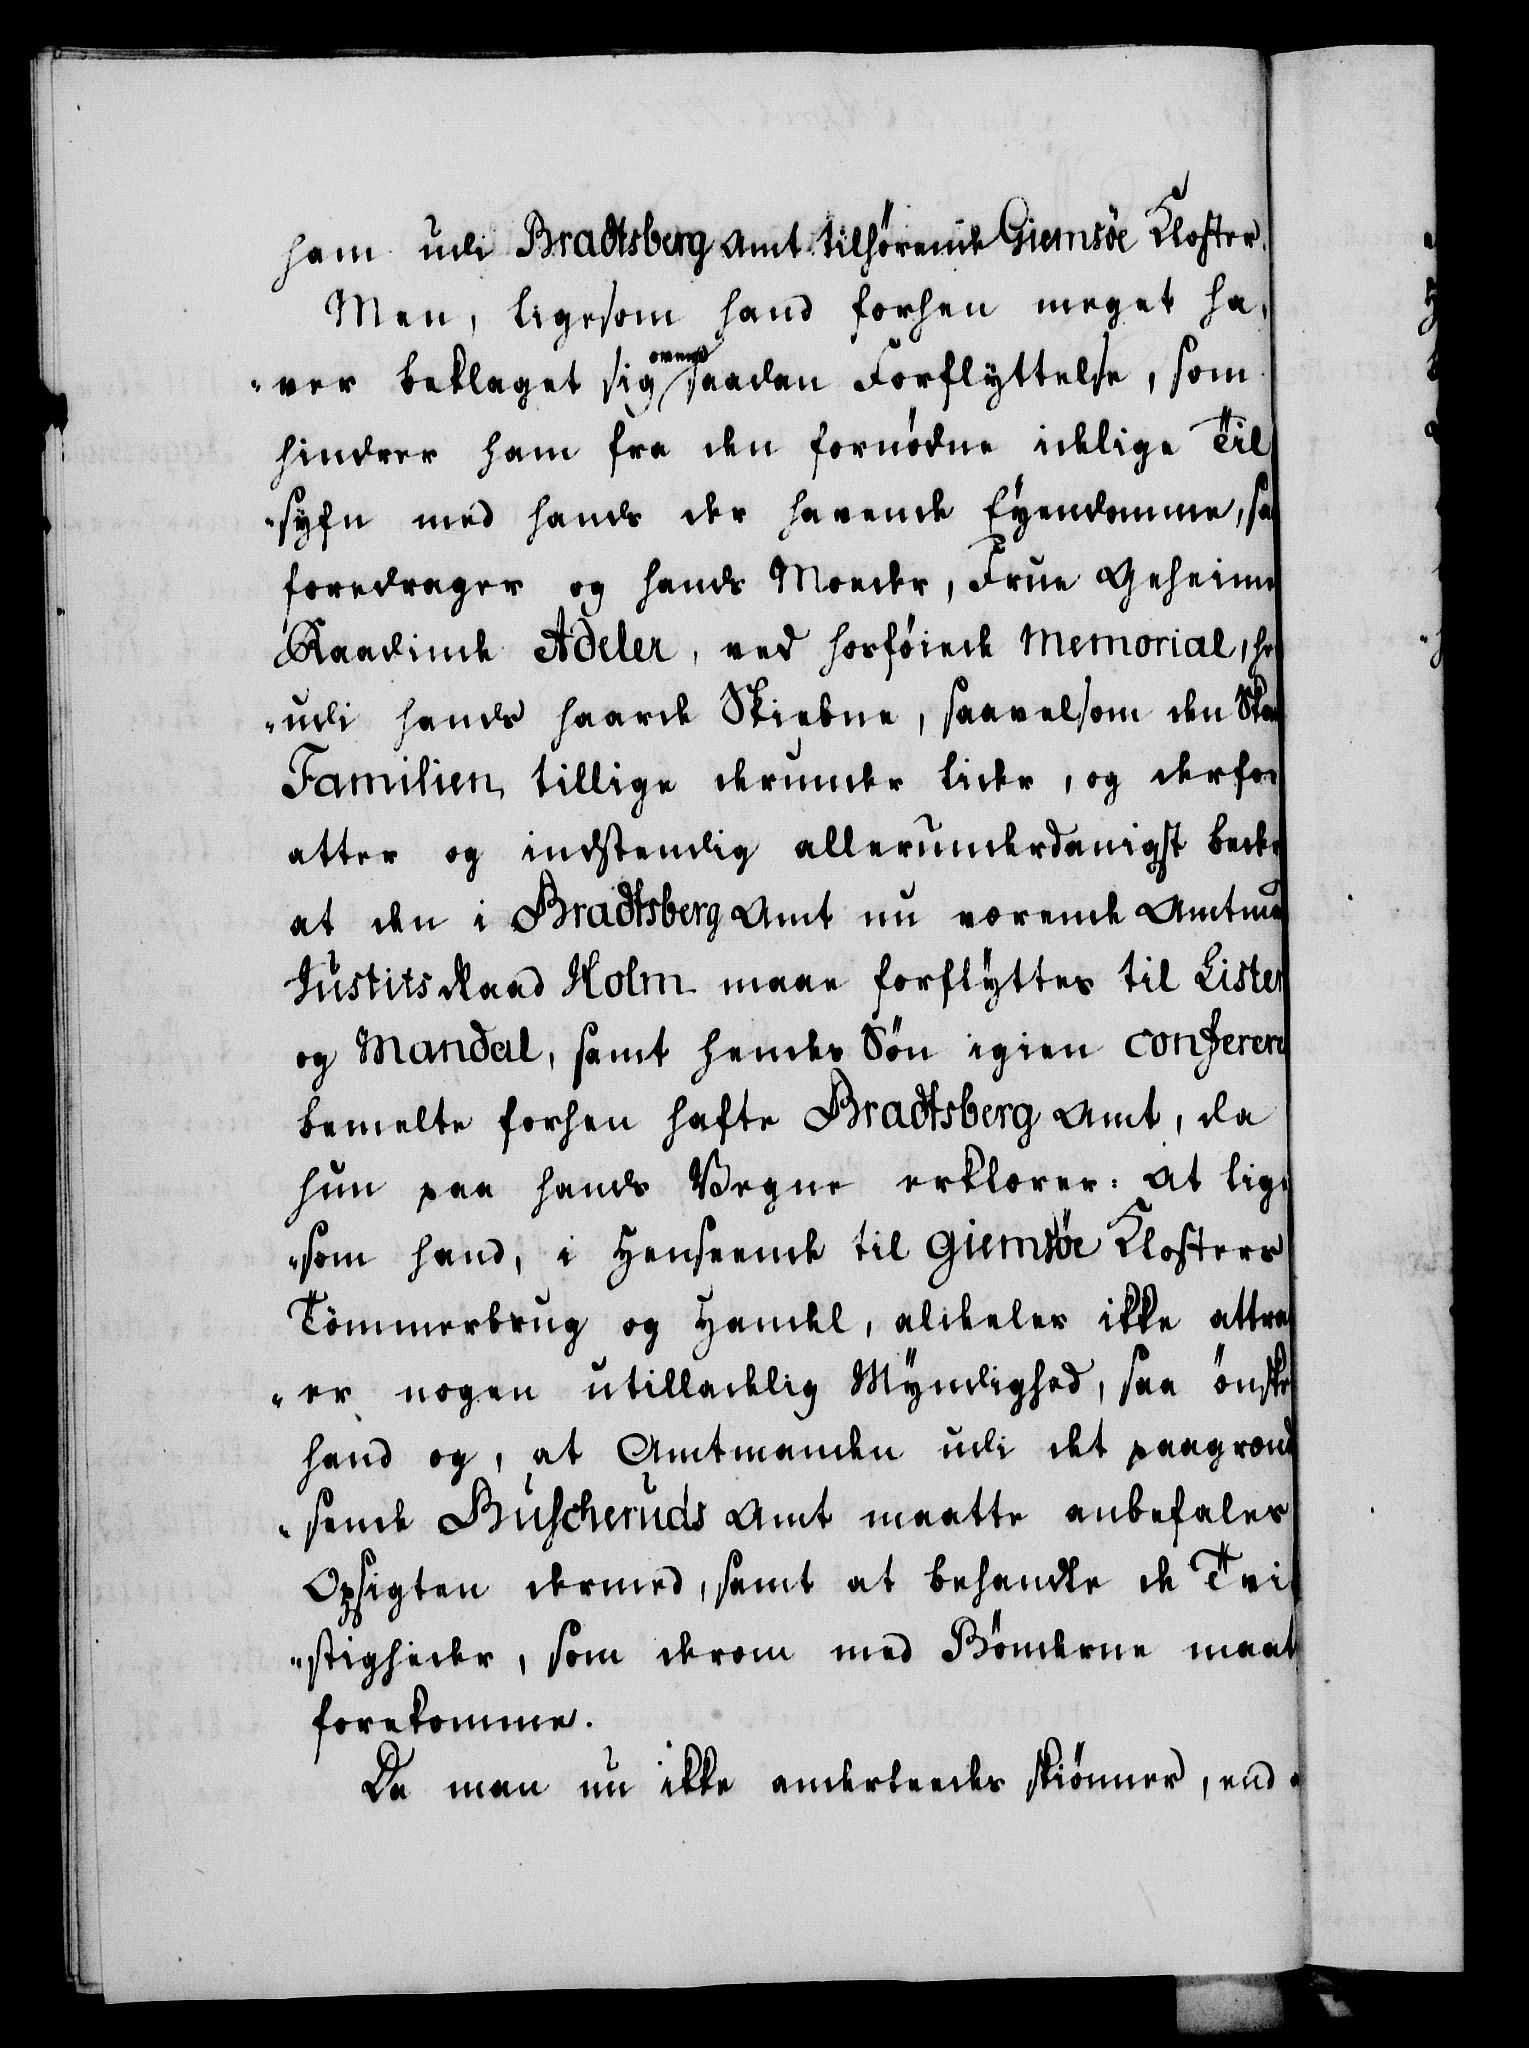 ham udi Bradtsberg Amt tilhørende Giemsöe Kloster.
Men, ligesom hand forhen meget ha,
"ver beklaget sig over saadan Forflyttelse, som
hindrer ham fra den fornødne idelige Til
"syfn med hands der havende Eyendomme, saa
foredrager og hands Moeder, Frue Geheime
Raadinde Adeler, ved hosføiede Memorial, hr
"udi hands haarde Skiebne, saavelsom den Skad
Familien tillige derunder lider, og derfor
atter og indstendig allerunderdanigst beder
at den i Bradtsberg Amt nu værende Amtma
Justits Raad Holm maae forflyttes til Lister
og Mandal, samt hendes Sön igien conferere
bemelte forhen hafte Bradtsberg Amt, da
hun paa hands Vegne erklærer: At lige
"som hand, i Henseende til Giemsöe Klosters
Tömmerbrug og Handel, aldeles ikke attra
"er nogen utilladelig Myndighed, saa önske
hand og, at Amtmanden udi det paagrænd
"sende Buscheruds Amt maatte anbefales
Opsigten dermed, samt at behandle de Tvi
"stigheder, som derom med Bönderne maat
forekomme.
Da man nu ikke anderleedes skiönner, end